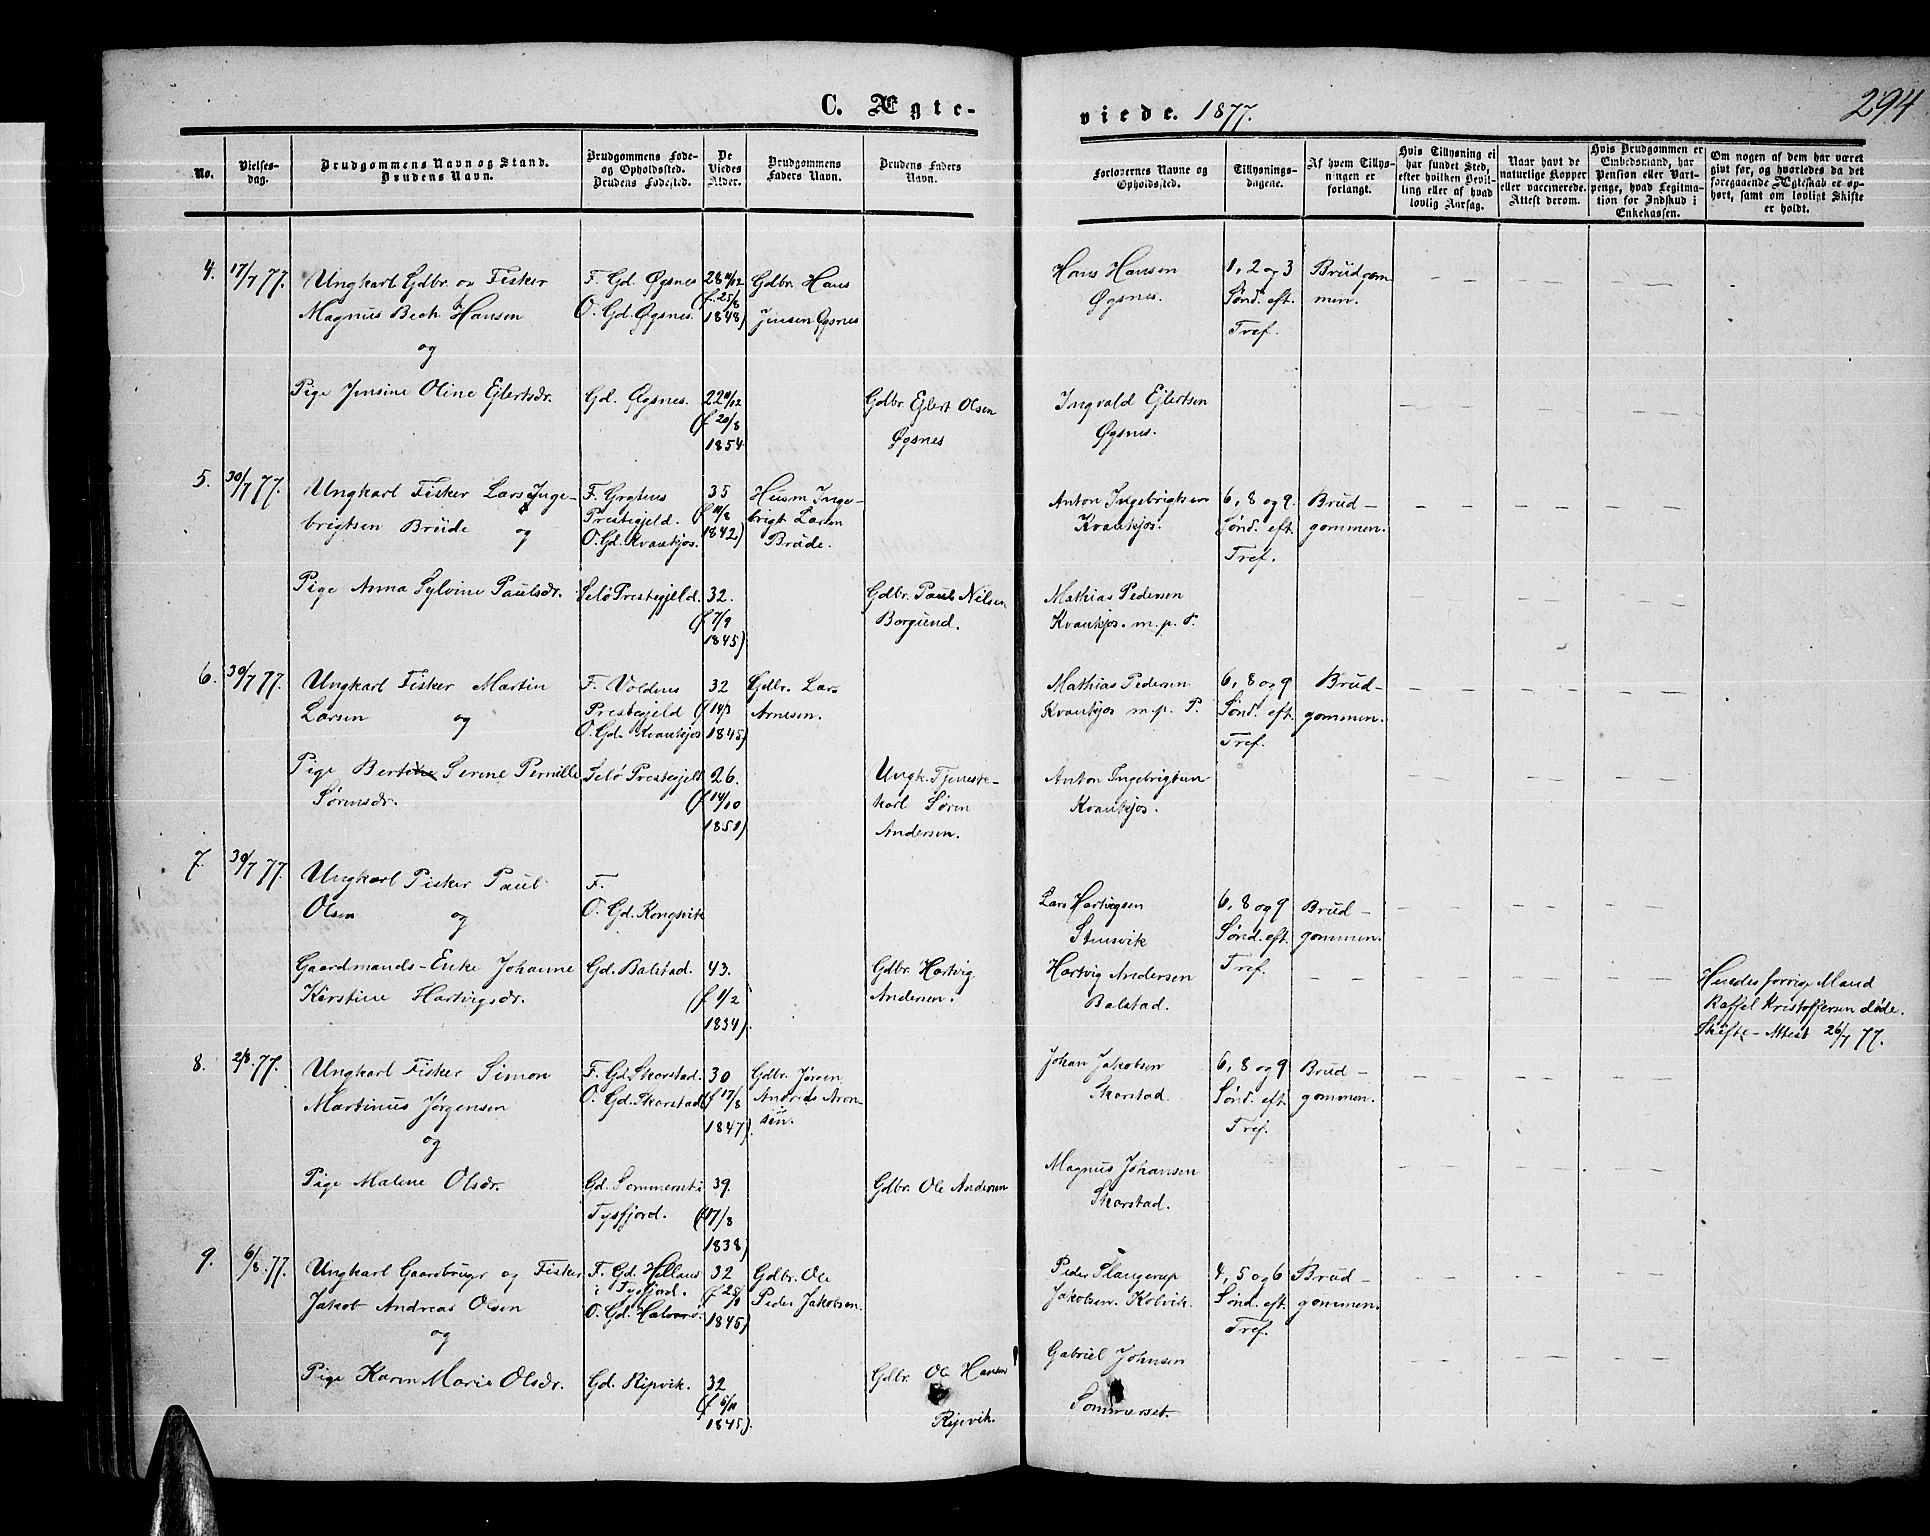 C. Ægte-
viede. 1877.
294
No.
Vielses-
dag.
Brudgommens Navn og Stand.
Brudens Navn.
Brudgommens Føde-
og Opholdssted.
Brudens Fødested.
De
Viedes
Alder.
Brudgommens
Faders Navn.
Brudens Faders
Navn.
Forlovernes Navne og
Opholdssted.
Tillysnings-
dagene.
Af hvem Tillys-
ningen er
forlangt.
Hvis Tillysning ei
har fundet Sted,
efter hvilken Bevil-
ling eller af hvad
lovlig Aarsag.
Naar havt de
naturlige Kopper
eller vaccinerede.
Attest derom.
Hvis Brudgommen er
Embedsmand, har
Pension eller Vart-
penge, hvad Legitima-
tion for Indskud i
Enkekassen.
Om nogen af dem har været
givt før, og hvorledes da det
foregaaende Ægteskab er op-
hørt, samt om lovligt Skifte
er holdt.
4. 17/7 77. Ungkarl Gdbr. og Fisker F. Gd. Øgsnes 28 11/12 Gdbr. Hans Hans Hansen 1, 2 og 3 Brudgom
Magnus Bech Hansen O. Gd. Øgsnes. (f. 25/8 1848) Jensen Øgsnes Øgsnes. Sønd. eft. men.
og Tref.
Pige Jensine Oline Ejlertsdr. Gd. Øgsnes. 22 11/12 Gdbr. Ejlert Olsen Ingvald Ejlertsen
(f 20/8 1854 Øgsnes Øgsnes.
5. 30/7 77. Ungkarl Fisker Lars Inge- F. Grythus 35 Husm Inge- Anton Ingebrigtsen 6, 8 og 9 Brud-
brigtsen Brude og Prestegjeld. (f 11/8 brigt Larsen Kvankjos. Sønd. eft. gommen.
O. Gd. Kvankjos. 1842) Brude. Tref.
Pige Anna Sylvine Paulsdr. Selø Prestegjeld. 32. Gdbr. Paul Nilsen Mathias Pedersen
(f 7/9 1845) Borgund. Kvankjos. m. p. P.
6. 30/7 77. Ungkarl Fisker Martin F. Voldens 32 Gdbr. Lars Mathias Pedersen 6, 8 og 9 Brud-
Larsen og Prestegjeld (f 14/3 Arnesen. Kvankjos m. p. P. Sønd. eft. gommen.
O. Gd. Kvankjos 1845) Tref.
Pige Serine Pernille Selø Prestegjeld 26. Ungk. Tjeneste- Anton Ingebrigtsen
Sørensdr. (f 14/10 karl Søren Kvankjos.
1850) Andersen.
7. 30/7 77. Ungkarl Fisker Paul F. Lars Hartvigsen 6, 8 og 9 Brud-
Olsen og O. Gd. Kongsvik Stensvik Sønd. eft. gommen.
Gaardmands-Enke Johanne Gd. Balstad. 43. Gdbr. Hartvig Hartvig Andersen Tref. Hendes forrige Mand
Kerstine Hartvigsdr. (f 1/2 Andersen. Balstad. Raffel Kristoffersen døde.
1834). Skifte-Attest 26/7 77.
8. 2/8. 77. Ungkarl Fisker Simon F. Gd. Skorstad. 30 Gdbr. Jørgen Johan Jakobsen 6, 8 og 9 Brud-
Martinus Jørgensen O. Gd. Skorstad (f 17/8 Andreas Aron- Skorstad. Sønd. eft. gommen.
og 1847). sen. Tref.
Pige Malene Olsdr. Gd. Sommerset i 39. Gdbr. Ole Andersen Magnus Johansen
Tysfjord. (f 17/8 Skorstad.
1838)
9. 6/8. 77. Ungkarl Gaardbruger og Fisker F. Gd. Helland 32 Gdbr. Ole Peder Plangerup 4, 5 og 6 Brud-
Jakob Andreas Olsen i Tysfjord. Peder Jakobsen. Jakobsen. Kolvik. Sønd. eft. gommen.
og O. Gd. 1845) Tref.
Pige Karen Marie Olsdr. Gd. Ripvik. 32 Gdbr. Ole Hansen Gabriel Johnsen
(f 6/11 1845). Ripvik. Sommerset.